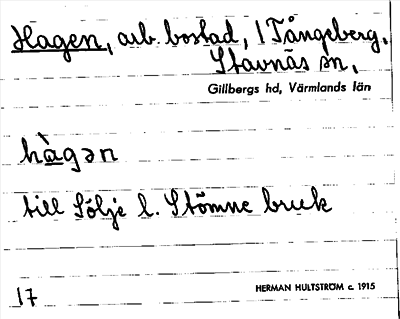 Hagen, arb. bostad, 1 Tångeberg.
Stavnäs sn,
Gillbergs hd, Värmlands län
hàgən
till Sölje l. Stömne bruk
17
HERMAN HULTSTRÖM c. 1915